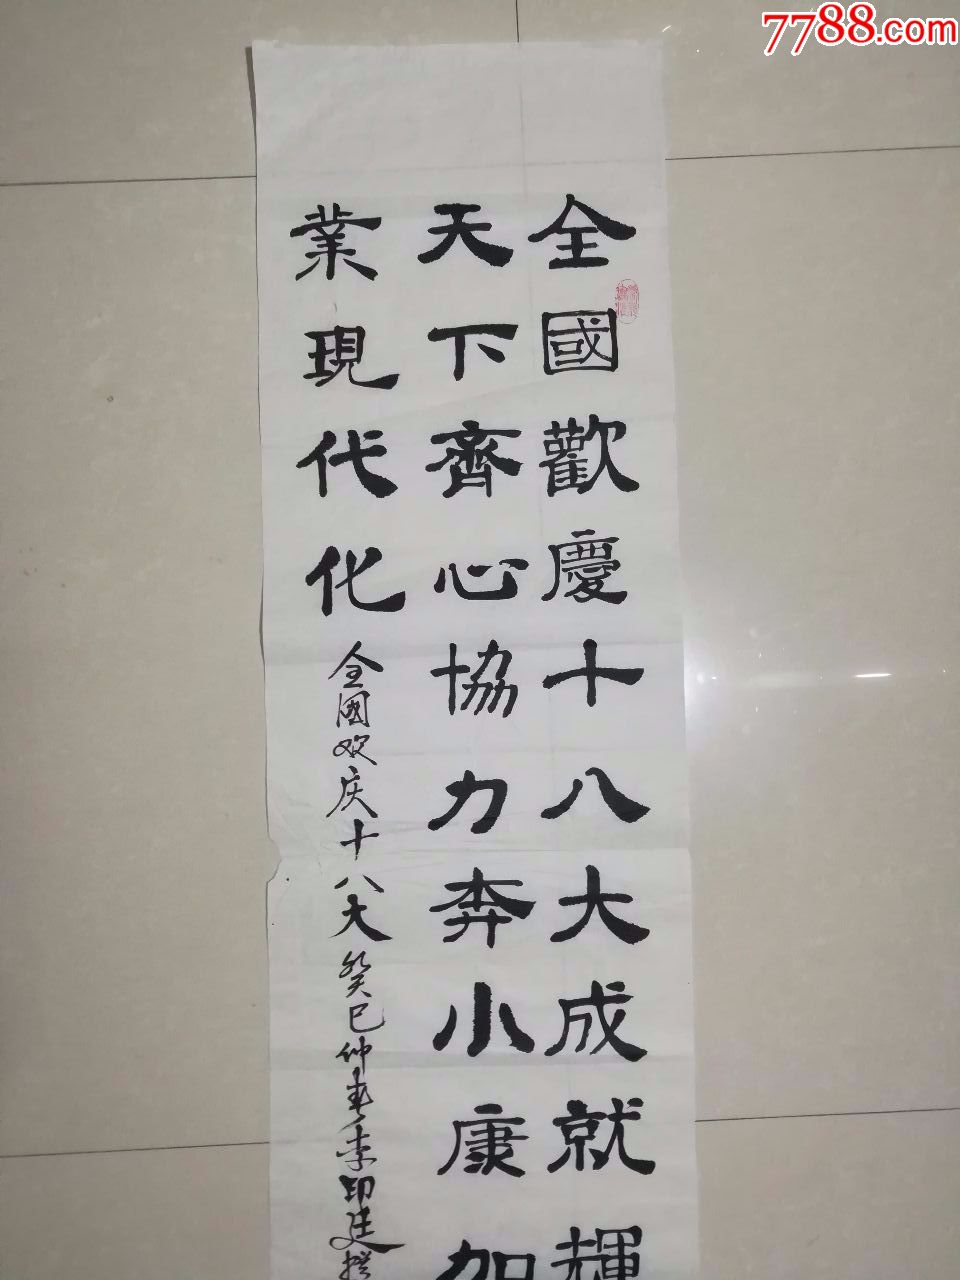 7788.com
全國歡慶十八大成就輝
天下齊心協力奔小康加
業現代化
全國欢庆十八大癸巳仲春李印廷撰